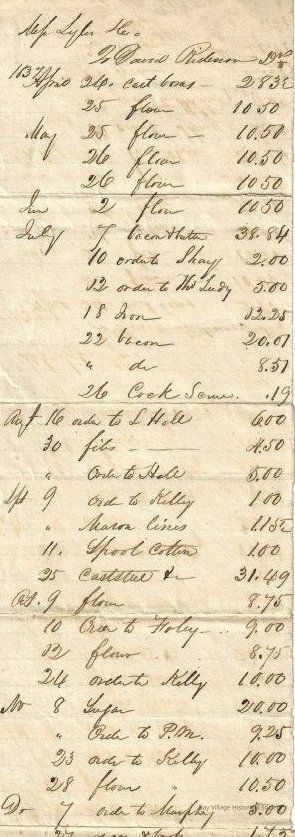 Mess Lyfer & Co
To David Dr
1837 April 24 cast boxes - 28 32
25 flour 10.50
May 25 flour - 10.50
26 flour 10.50
26 flour 10.50
Jun 2 flour 10 50
July 7 bacon & butter 38.84
10 order to Shay 2.00
12 order to Thos Ludy 5.00
18 Iron 12.25
22 bacon 20.01
" do 8.51
26 Cock Screw .19
Augt 16 order to L Hole 6.00
30 files - 4.50
" Order to Hole 5.00
Spt 9 orde to Kelly 1 00
" Mason lines 1 15 1/2
11. Spool Cotton 1.00
25 caststeel &c 31.49
Oct. 9 flour 8.75
10 Orer to Foley - .. 9.00
12 flour 8.75
24 order to Kelly 10.00
Nov 8 Sugar 20.00
" Order to P.M. 9.25
23 order to Kelly 10.00
28 flour 10.50
De 7 order to Murphy 3.00
Bay Village Historical